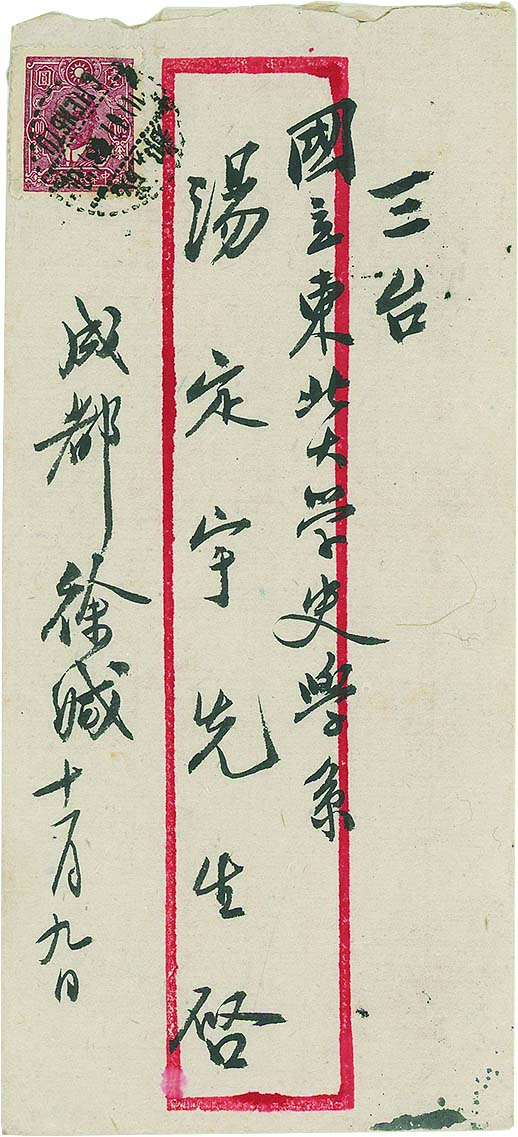 三台
國立東北大学史學系
湯定宇先生啓
成都徐緘十一月九日